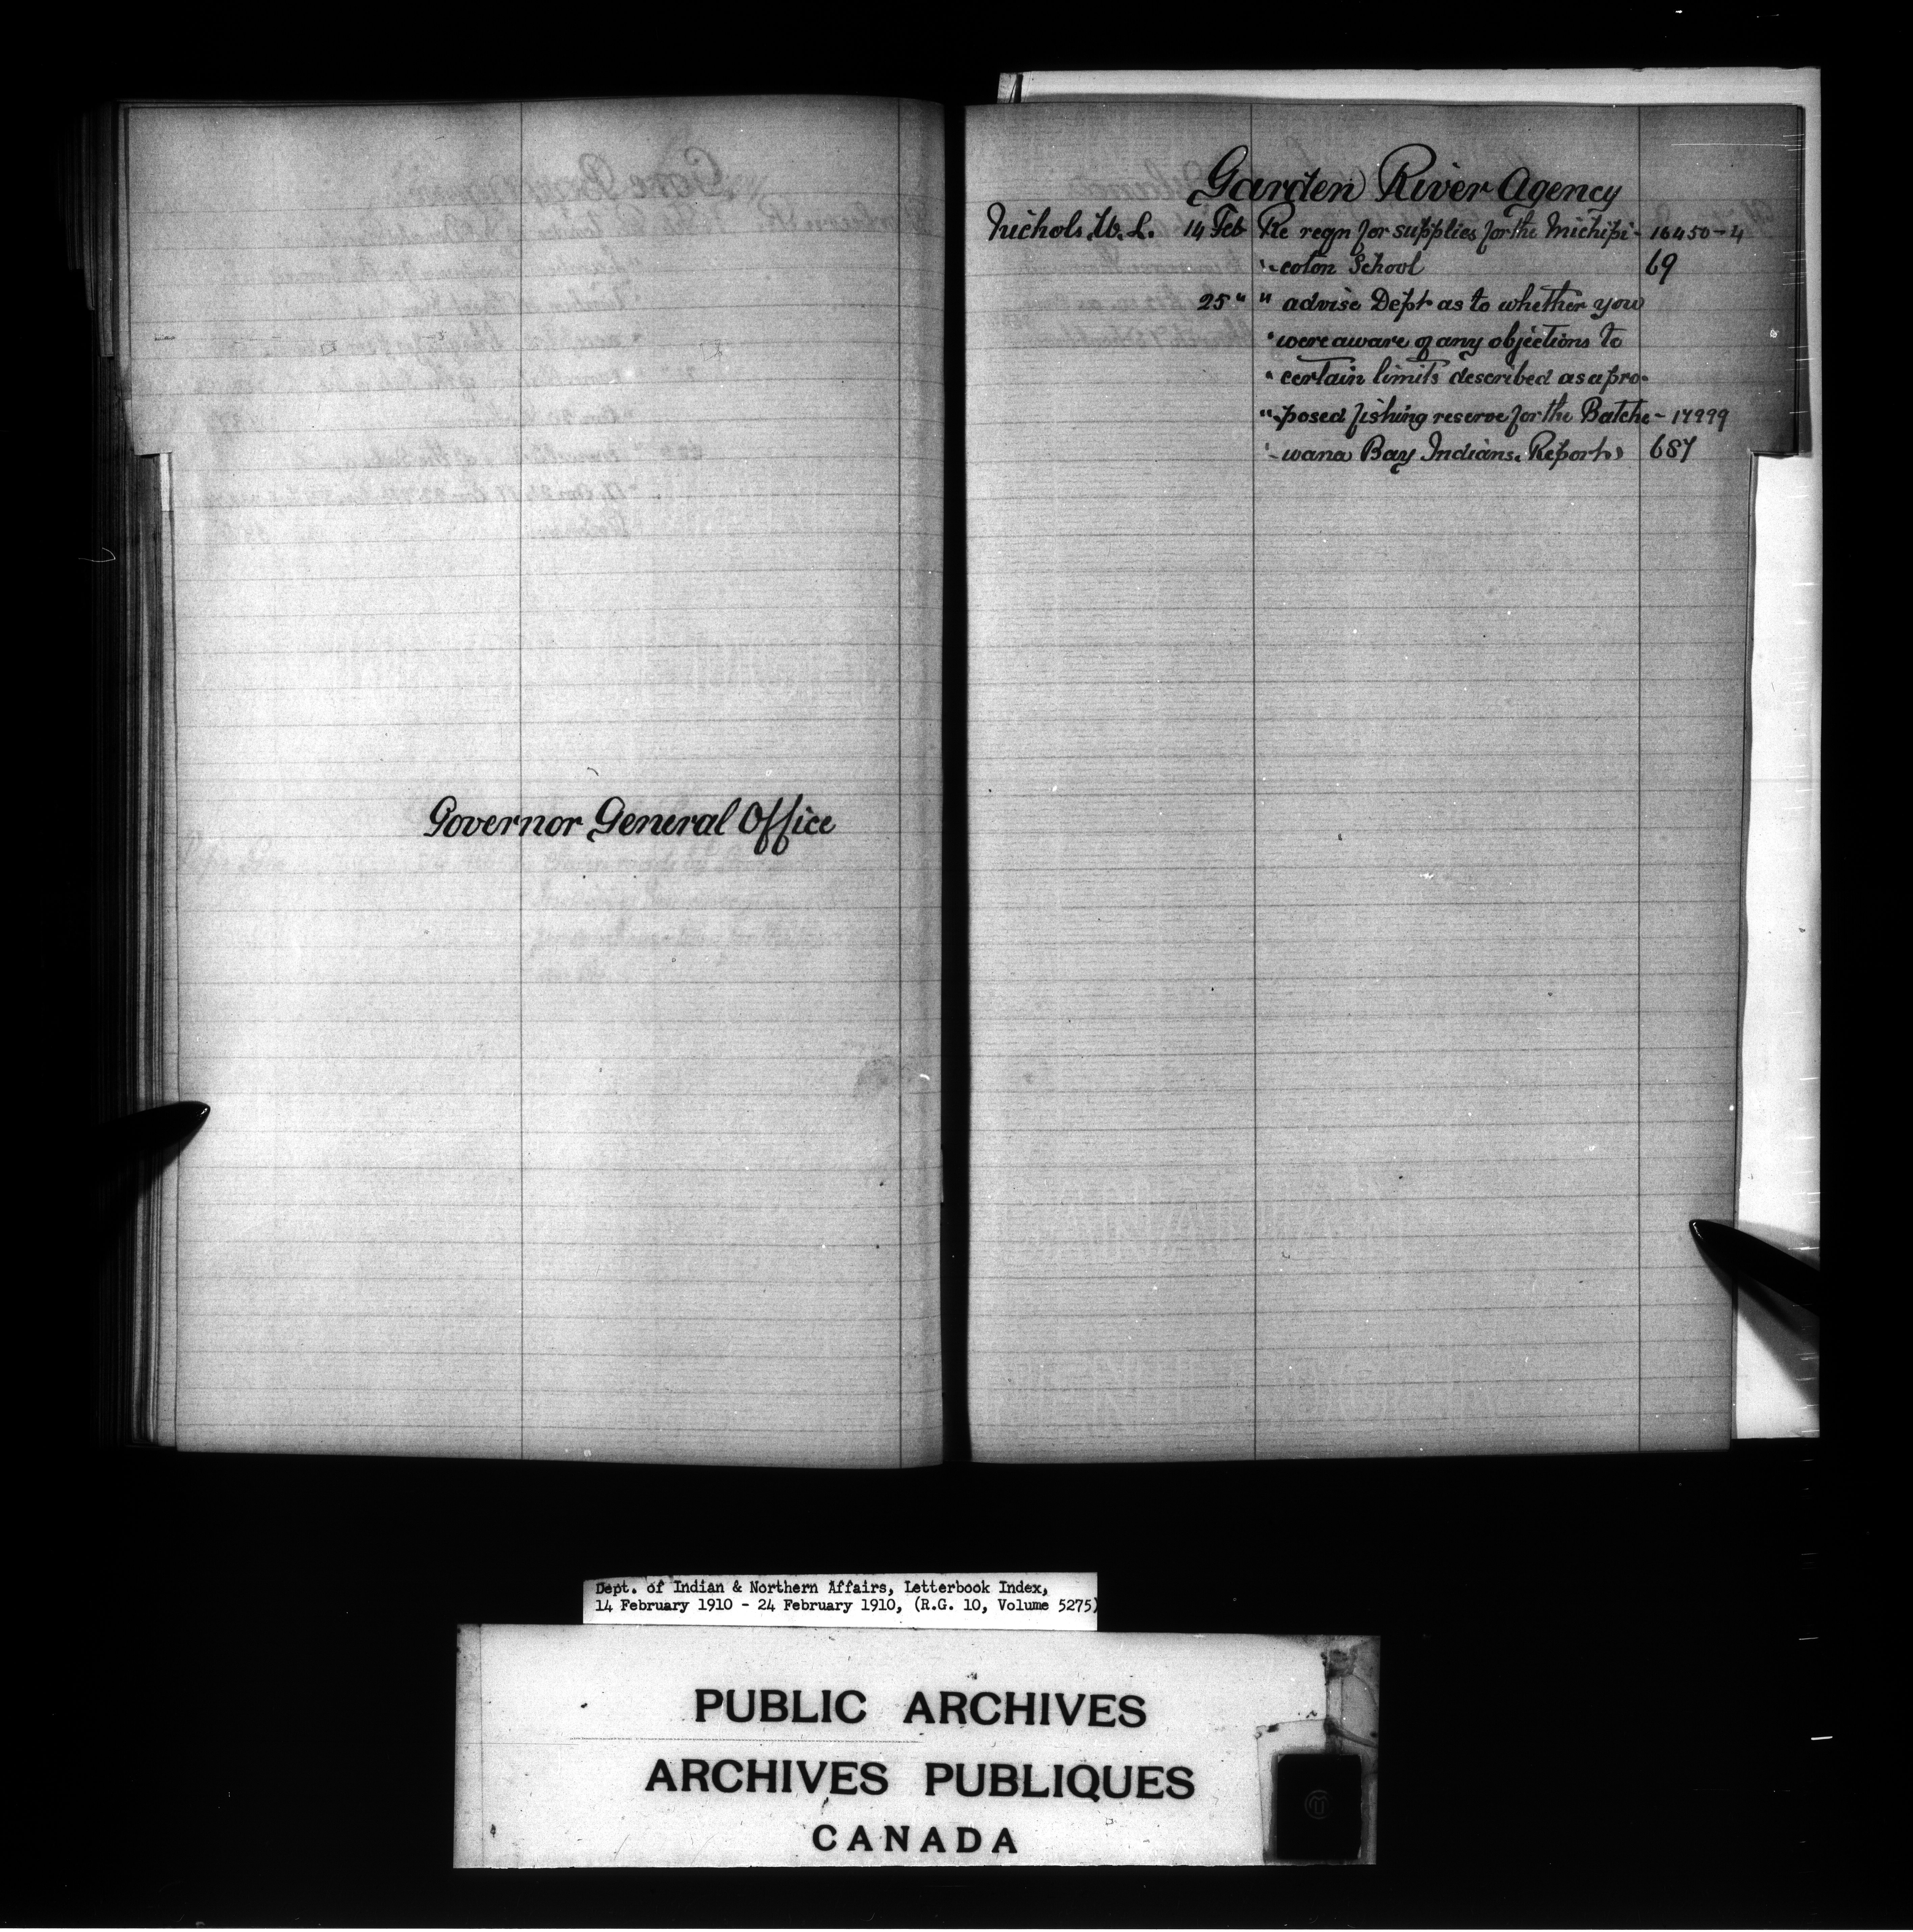 Governor General Office
Garden River Agency
Nichols. W. L. 14 Feb Re reqn for supplies for the Michipi- 16450-4
"-coton School 69
25 " " advise Dept as to whether you
" were aware of any objections to
" certain limits described as a pro-
"-posed fishing reserve for the Batche- 17999
"-wana Bay Indians. Report 687
Dept. of Indian & Northern Affairs, Letterbook Index,
14 February 1910 - 24 February 1910, (R.G. 10, Volume 5275)
PUBLIC ARCHIVES
ARCHIVES PUBLIQUES
CANADA